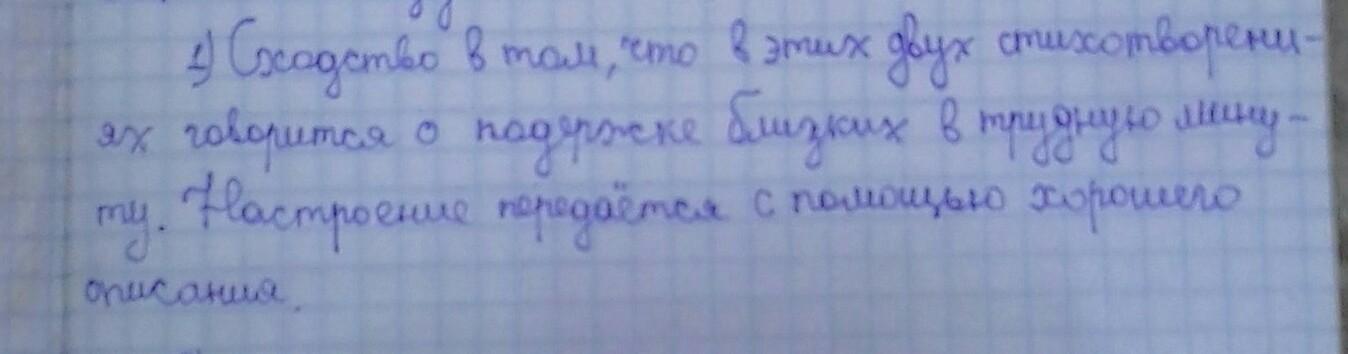 1) Сходство в том, что в этих двух стихотворени-
ях говорится о подержке близких в трудную мину-
ту. Настроение передаётся с помощью хорошего
описания.